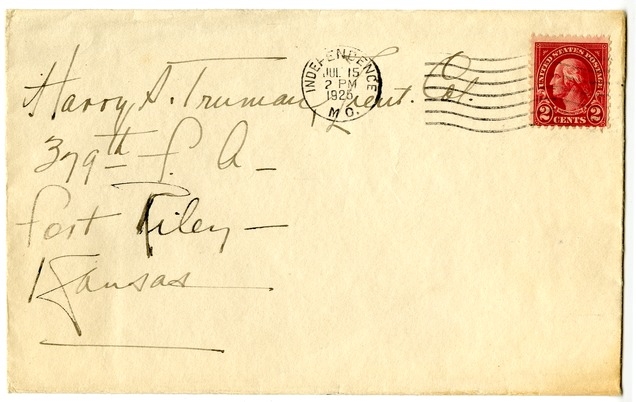 INDEPENDENCE
JUL 15
2 PM
1925
MO.
UNITED STATES POSTAGE
2 CENTS 2
Harry S. Truman, Lieut. Col.
379th F. A –
Fort Riley –
Kansas